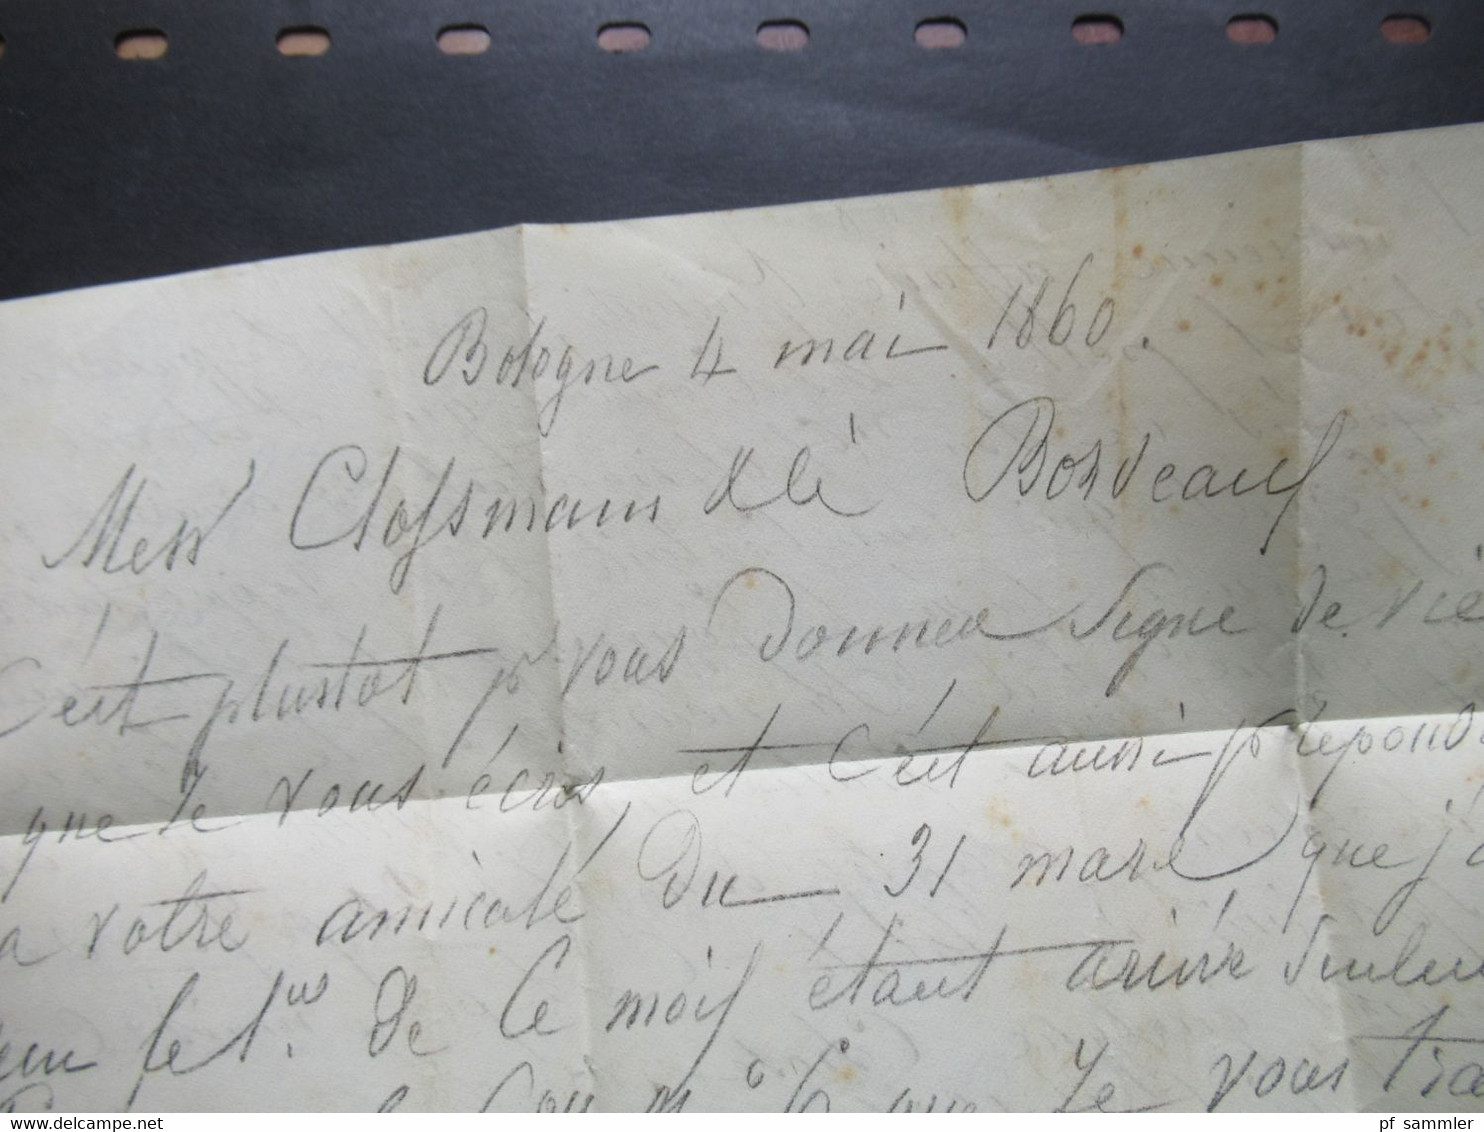 Bologne 4 mai 1860.
Mess. Clossmann & Cie Bordeaux
C'est plustot pr vous donner signe de vie
que je vous écris, et c'est aussi pr répond
a votre amicale du 31 mars que j'a
le 1er de ce mois étant arrivé seulem
que je vous
delcampe.net
pf_sammler